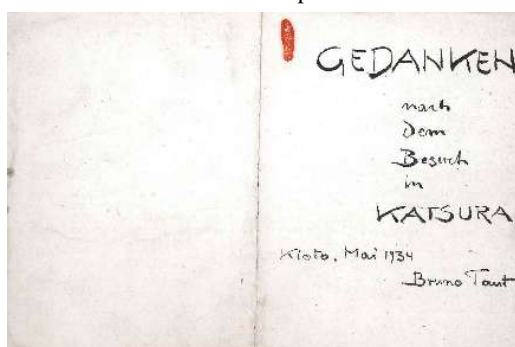 GEDANKEN
nach
dem
Besuch
in
KATSURA
Kioto, Mai 1934
Bruno Taut